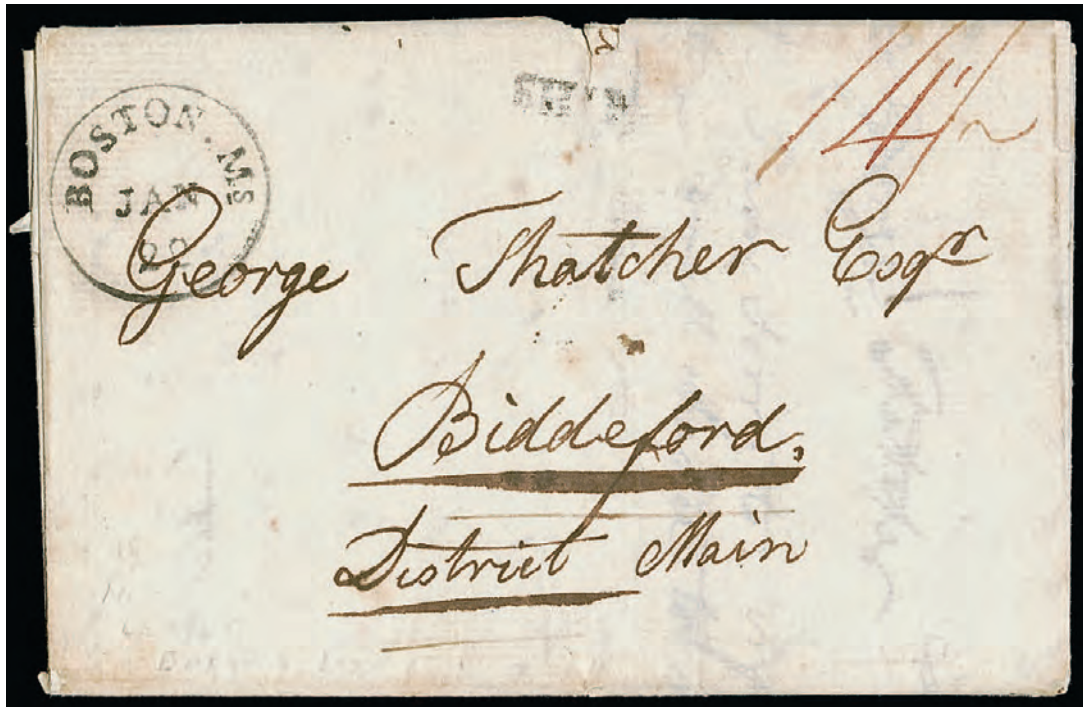 BOSTON. Ms
JAN
SHIP
14 1/2
George Thatcher Esqr
Biddeford.
District Main